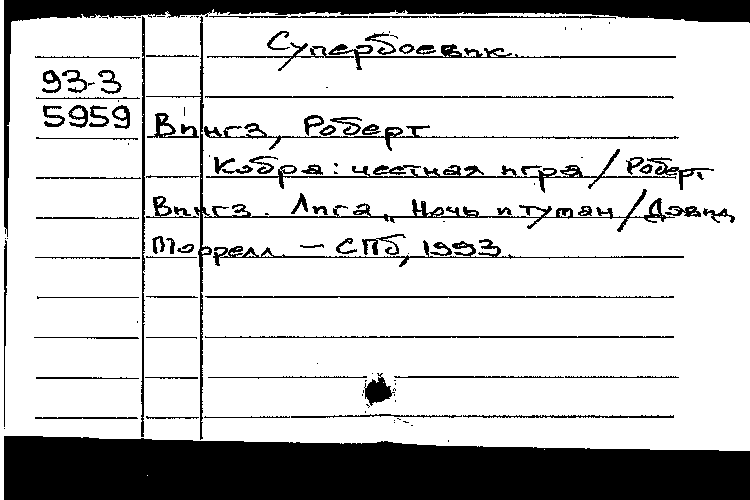 Супербоевик.
93-3
5959
Вингз, Роберт
Кобра: честная игра / Роберт
Вингз. Лига „Ночь и туман / Дэвид
Моррелл. – СПб, 1993.